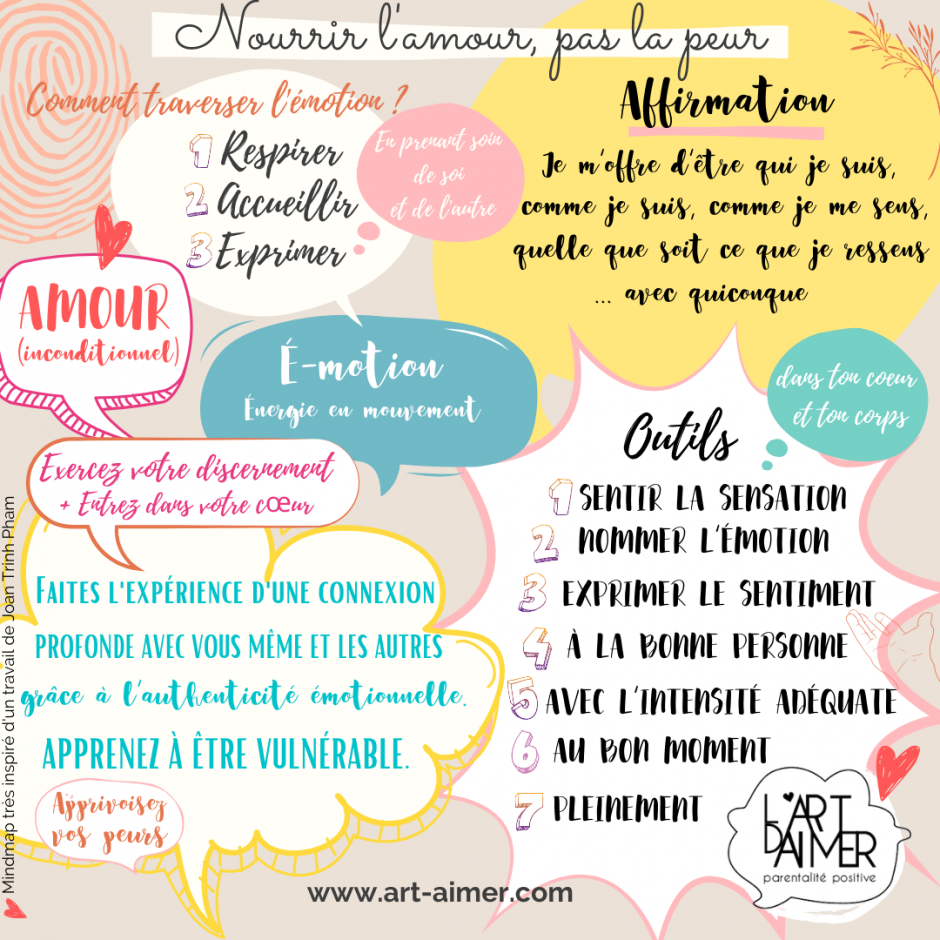 Nourrir l'amour, pas la peur
Comment traverser l'émotion ?
1 Respirer
2 Accueillir
3 Exprimer
En prenant soin
de soi
et de l'autre
Affirmation
Je m'offre d'être qui je suis,
comme je suis, comme je me sens,
quelle que soit ce que je ressens
... avec quiconque
AMOUR
(inconditionnel)
É-motion
Énergie en mouvement
dans ton coeur
et ton corps
Outils
1 SENTIR LA SENSATION
2 NOMMER L'ÉMOTION
3 EXPRIMER LE SENTIMENT
4 À LA BONNE PERSONNE
5 AVEC L'INTENSITÉ ADÉQUATE
6 AU BON MOMENT
7 PLEINEMENT
Exercez votre discernement
+ Entrez dans votre cœur
FAITES L'EXPÉRIENCE D'UNE CONNEXION
PROFONDE AVEC VOUS MÊME ET LES AUTRES
grâce à l'authenticité émotionnelle.
APPRENEZ À ÊTRE VULNÉRABLE.
Apprivoisez
vos peurs
L'ART
D'AIMER
parentalité positive
www.art-aimer.com
Mindmap très inspiré d'un travail de Joan Trinh Pham